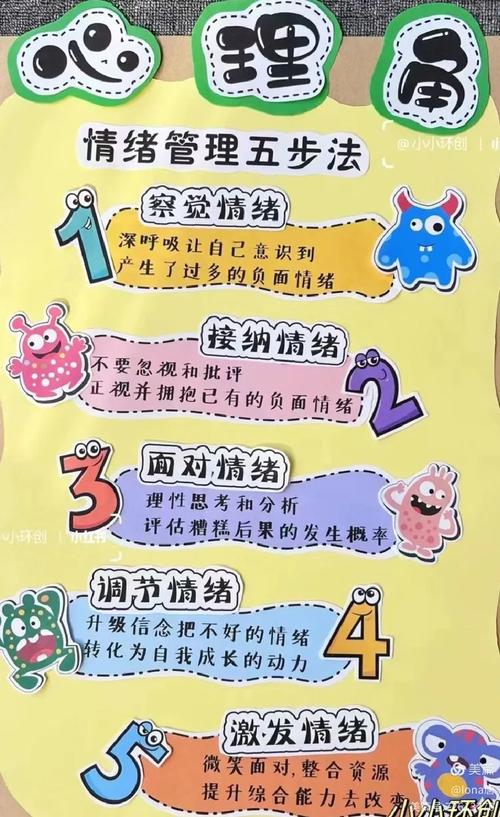 心理角
@小小环创
情绪管理五步法
察觉情绪
1
深呼吸让自己意识到
产生了过多的负面情绪
接纳情绪
不要忽视和批评
正视并拥抱已有的负面情绪
2
面对情绪
3
理性思考和分析
评估糟糕后果的发生概率
小环创
小红书
调节情绪
升级信念把不好的情绪
转化为自我成长的动力
4
激发情绪
5
微笑面对,整合资源
提升综合能力去改变
美篇
小小环创